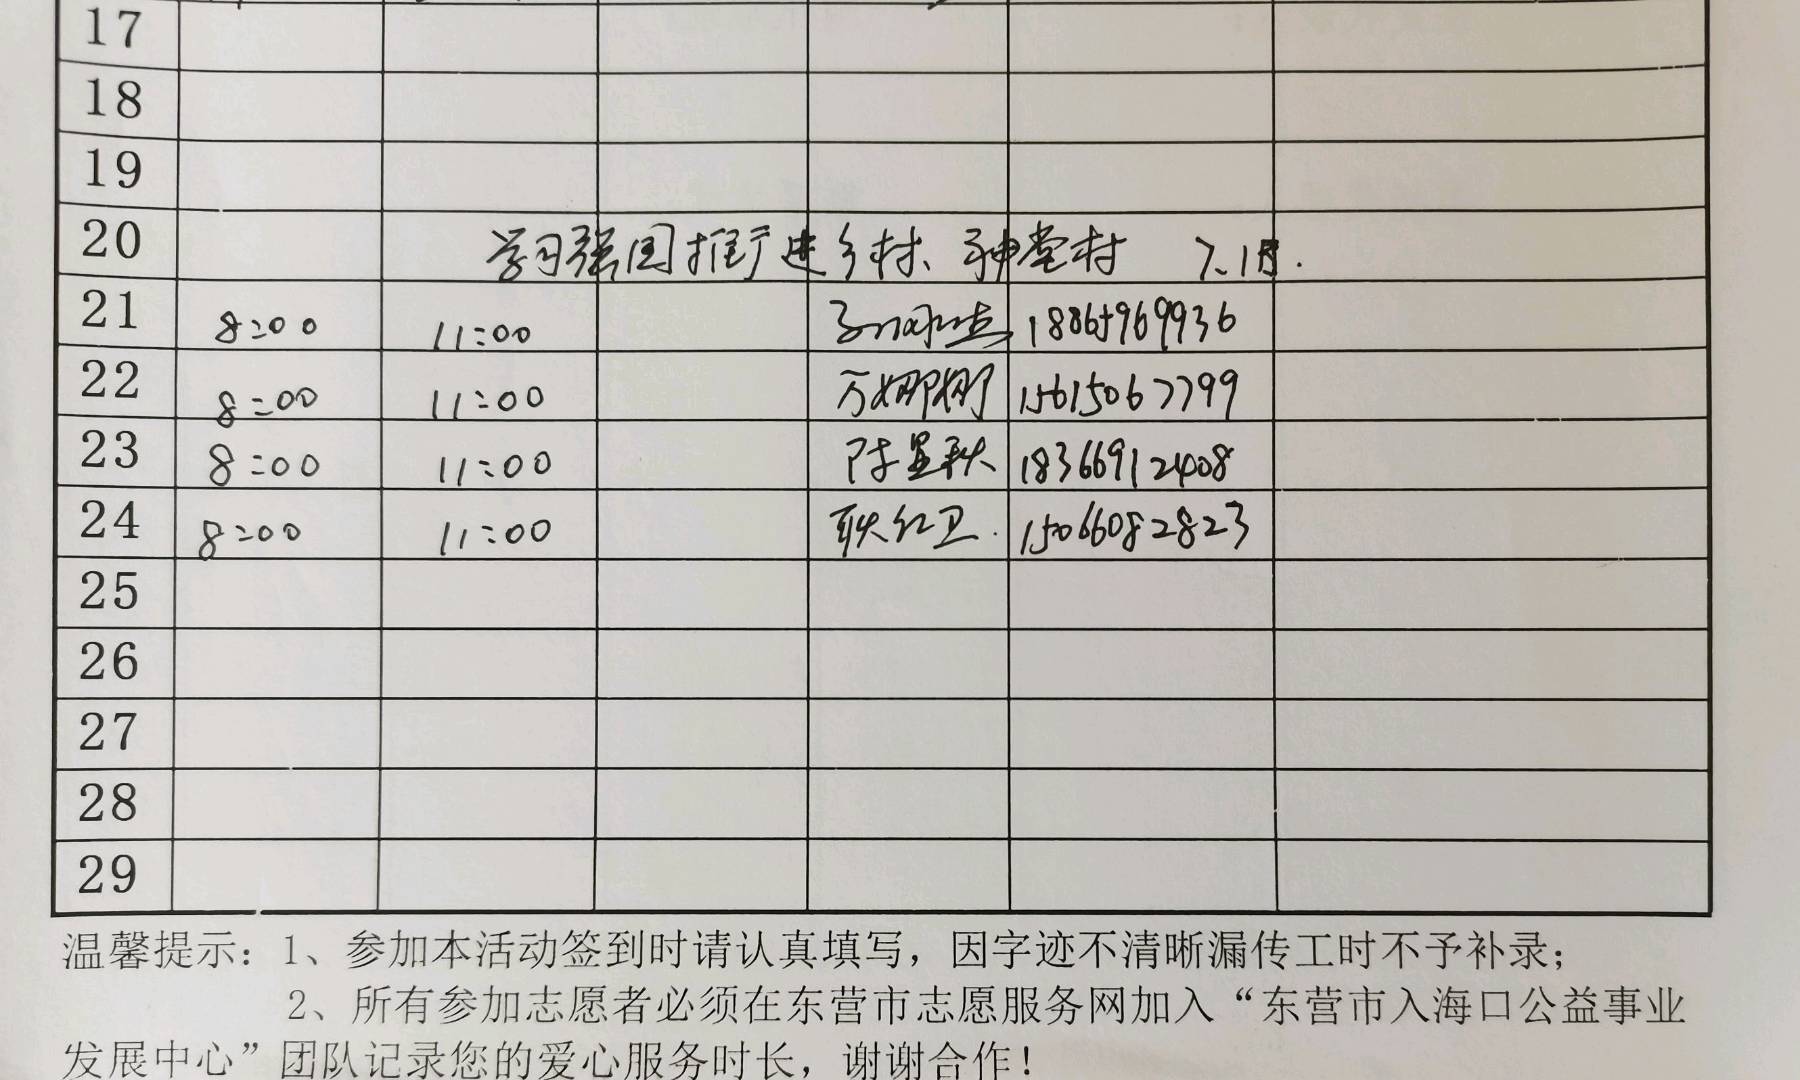 17
18
19
20 学习强国推广进乡村、神堂村 7.1日.
21 8:00 11:00 18865969936
22 8:00 11:00 万娜娜 15615067799
23 8:00 11:00 陈显秋 18366912408
24 8:00 11:00 耿红卫. 15066082823
25
26
27
28
29
温馨提示：1、参加本活动签到时请认真填写，因字迹不清晰漏传工时不予补录；
2、所有参加志愿者必须在东营市志愿服务网加入“东营市入海口公益事业
发展中心”团队记录您的爱心服务时长，谢谢合作！